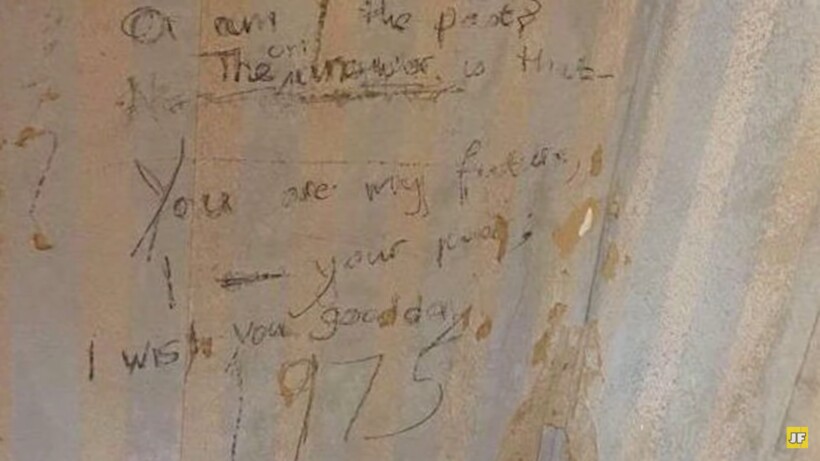 Or am I the past?
The answer is that—
You are my future,
I — your past;
I wish you good day.
1975
JF